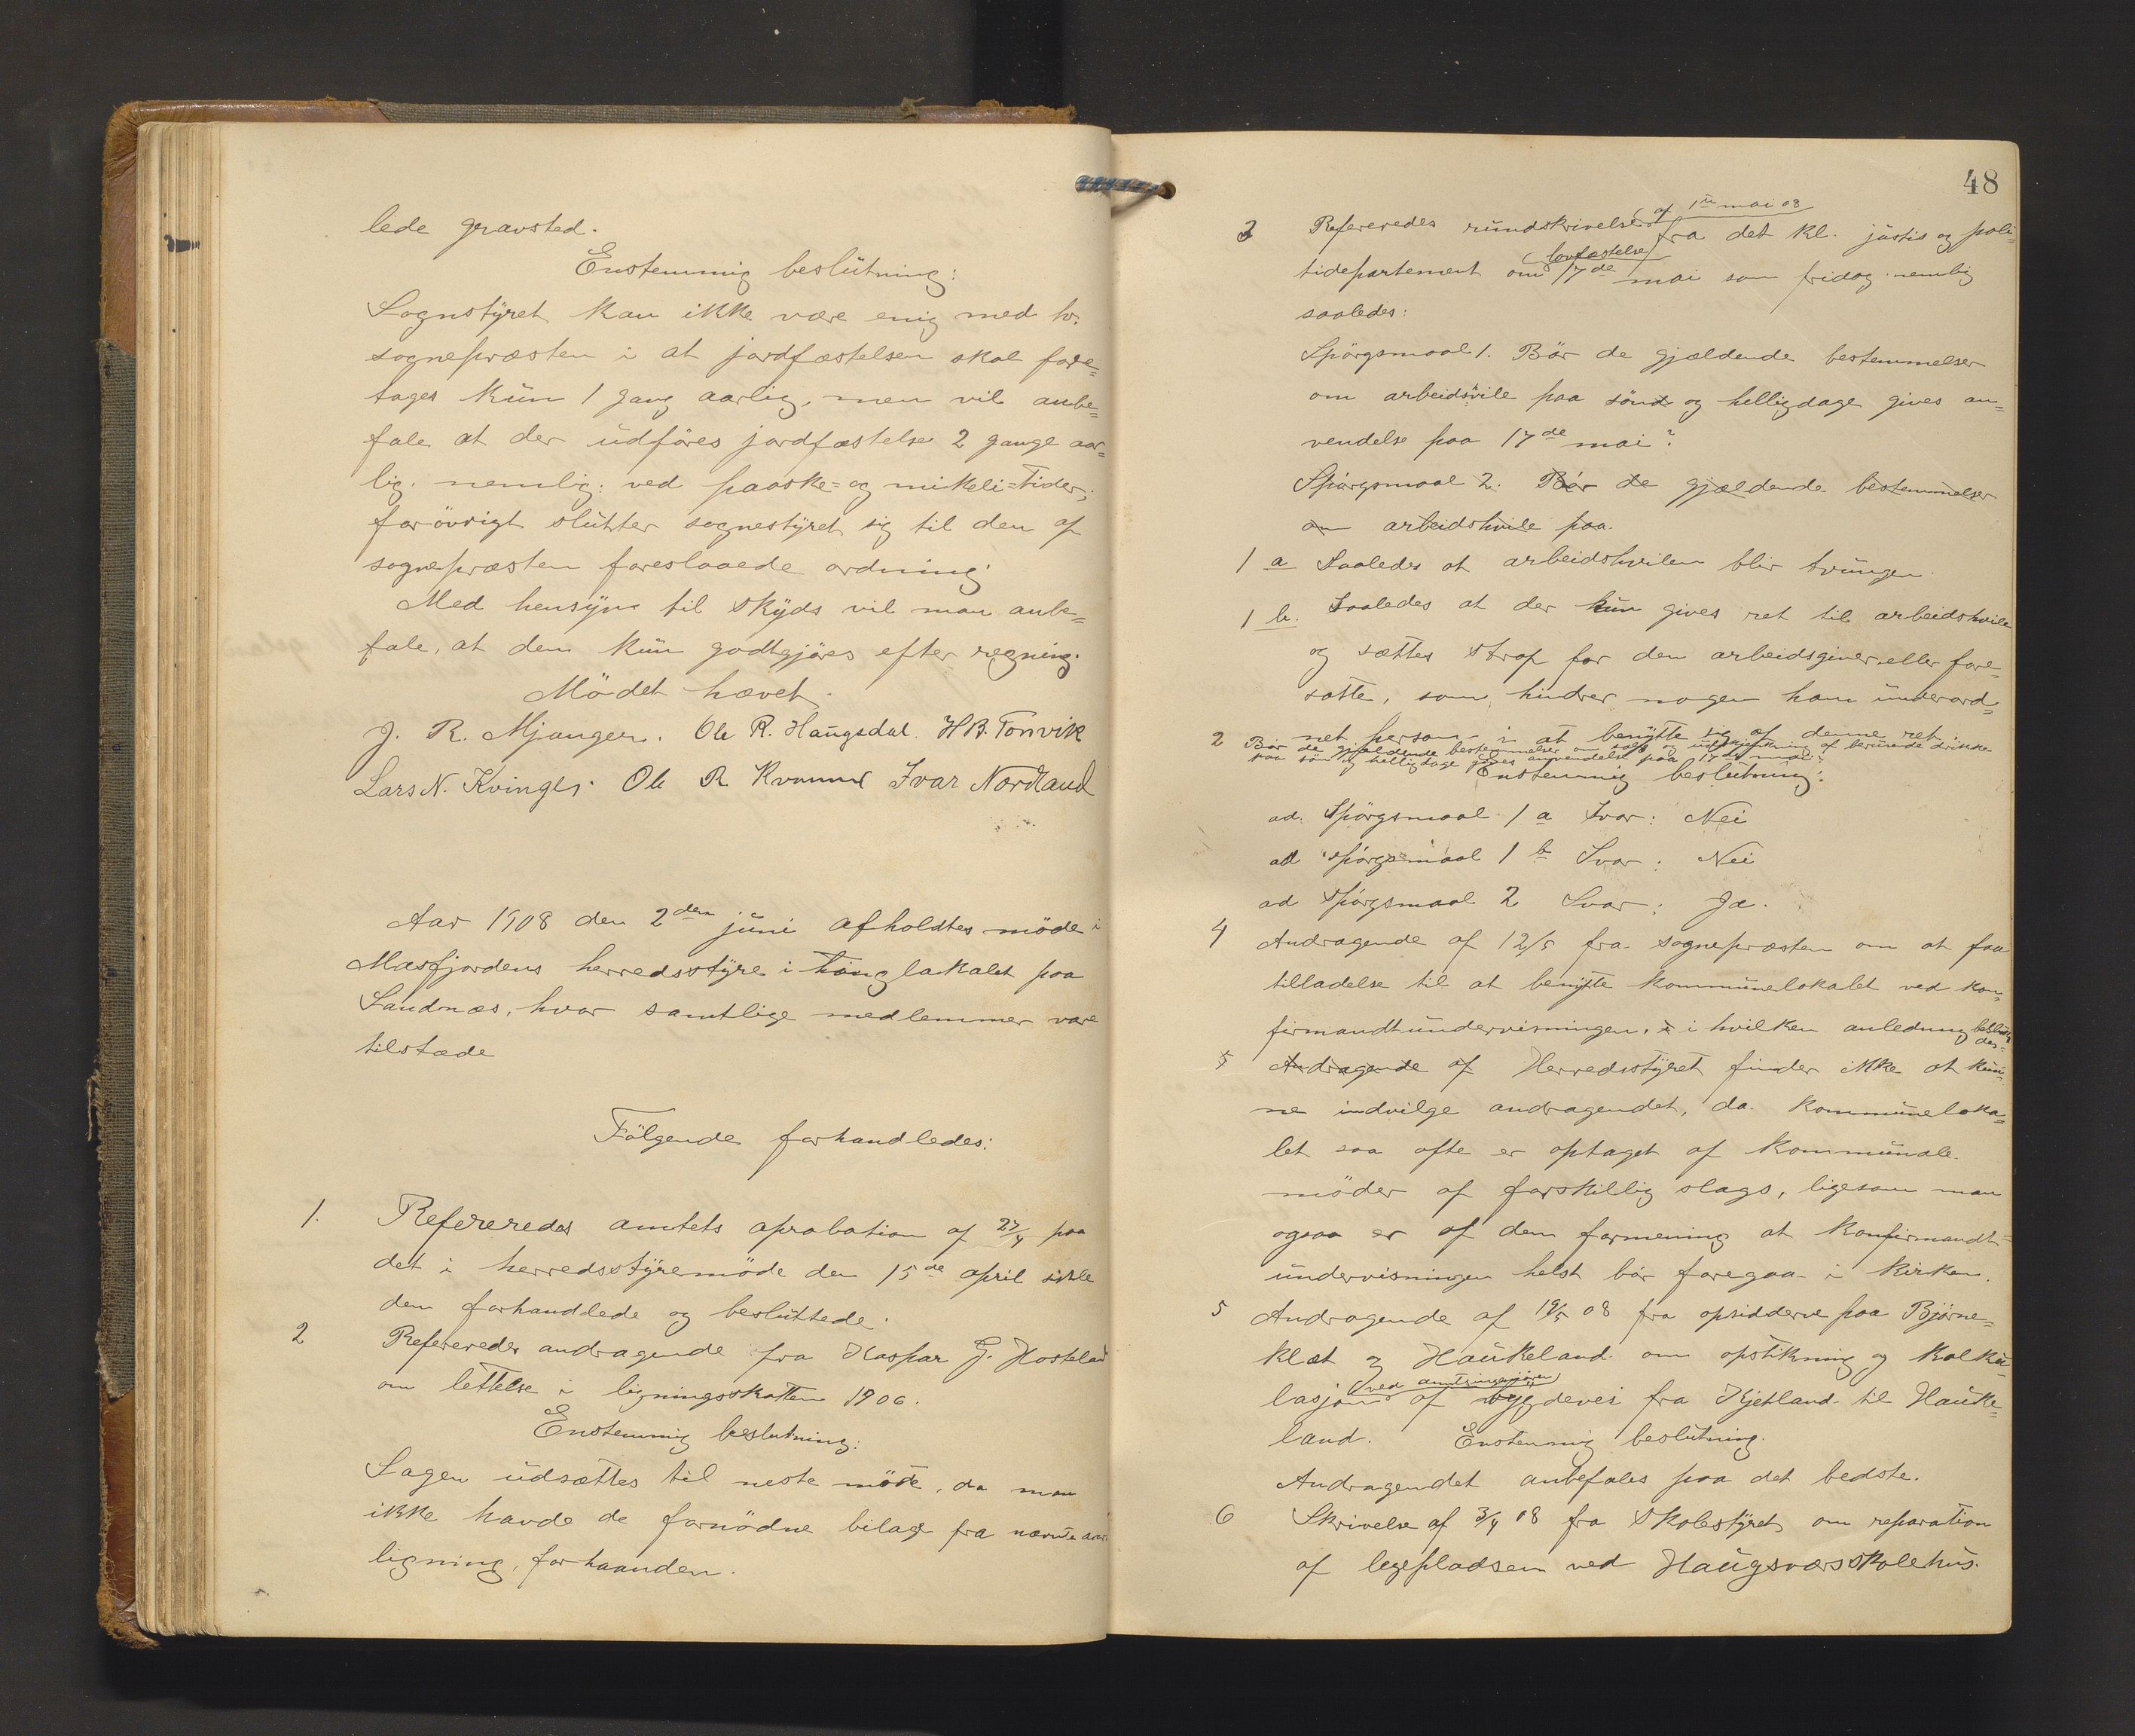 lede gravsted.
Enstemmig beslutning:
Sognstyret kan ikke være enig med hr.
sognepræsten i at jordfæstelsen skal fore=
tages kun 1 gang aarlig, men vil anbe=
fale at der udføres jordfæstelse 2 gange aar=
lig. nemlig: ved paaske= og mikeli=tider;
forøvrigt slutter sognestyret sig til den af
sognepræsten foreslaaede ordning.
Med hensyn til skyds vil man anbe=
fale, at den kun godtgjøres efter regning.
Mødet hævet.
J. R. Mjanger. Ole R. Haugsdal. H B. Tonvik
Lars N. Kvinge. Ole R Kvamme Ivar Nordland
Aar 1908 den 2den juni afholdtes møde i
Masfjordens herredsstyre i thinglokalet paa
Sandnæs, hvor samtlige medlemmer vare
tilstæde
Følgende forhandledes:
1. Refereredes amtets aprobation af 27/4 paa
det i herredsstyremøde den 15de april sidst
den forhandlede og besluttede.
2 Refereredes andragende fra Kaspar G. Hosteland
om lettelse i ligningsskatten 1906.
Enstemmig beslutning:
Sagen udsættes til neste møde, da man
ikke havde de fornødne bilag fra nævnte aars
ligning, forhaanden.
48
3 Refereredes rundskrivelse (af 1ste mai 08) fra det kl. justis og poli=
tidepartement om (lovfæstelse) 17de mai som fridag nemlig
saaledes:
Spørgsmaal 1. Bør de gjældende bestemmelser
om arbeidshvile paa søn og helligdage gives an=
vendelse paa 17de mai?
Spørgsmaal 2. Bør de gjældende bestemmelser
om arbeidshvile paa
1 a Saaledes at arbeidshvilen blir tvungen
1 b. Saaledes at der kun gives ret til arbeidshvile
og sættes straf for den arbeidsgiver eller fore=
satte, som hindrer nogen ham underord=
net person i at benytte sig af denne ret.
2 Bør de gjældende bestemmelser om salg og udskjænkning af berusende drikke
paa søn og helligdage gives anvendelse paa 17de mai?
Enstemmig beslutning:
ad. Spørgsmaal 1 a Svar: Nei
ad spørgsmaal 1 b Svar: Nei
ad spørgsmaal 2 Svar: Ja.
4 Andragende af 12/5 fra sognepræsten om at faa
tilladelse til at benytte kommunelokalet ved kon=
firmandtundervisningen, i hvilken anledning beslut=
tedes=
5 Andragende af Herredsstyret finder ikke at kun=
ne indvilge andragendet, da kommuneloka=
let saa ofte er optaget af kommunale
møder af forskillig slags, ligesom man
ogsaa er af den formening at konfirmandt=
undervisningen helst bør foregaa i kirken.
5 Andragende af 19/5 08 fra opsidderne paa Bjørne=
klæt og Haukeland om opstikning og kalku=
lasjon (ved amtsingeniøren) af bygdevei fra Kjetland til Hauke=
land. Enstemmig beslutning.
Andragendet anbefales paa det bedste.
6 Skrivelse af 3/4 08 fra skolestyret om reparation
af legepladsen ved Haugsværsskolehus.